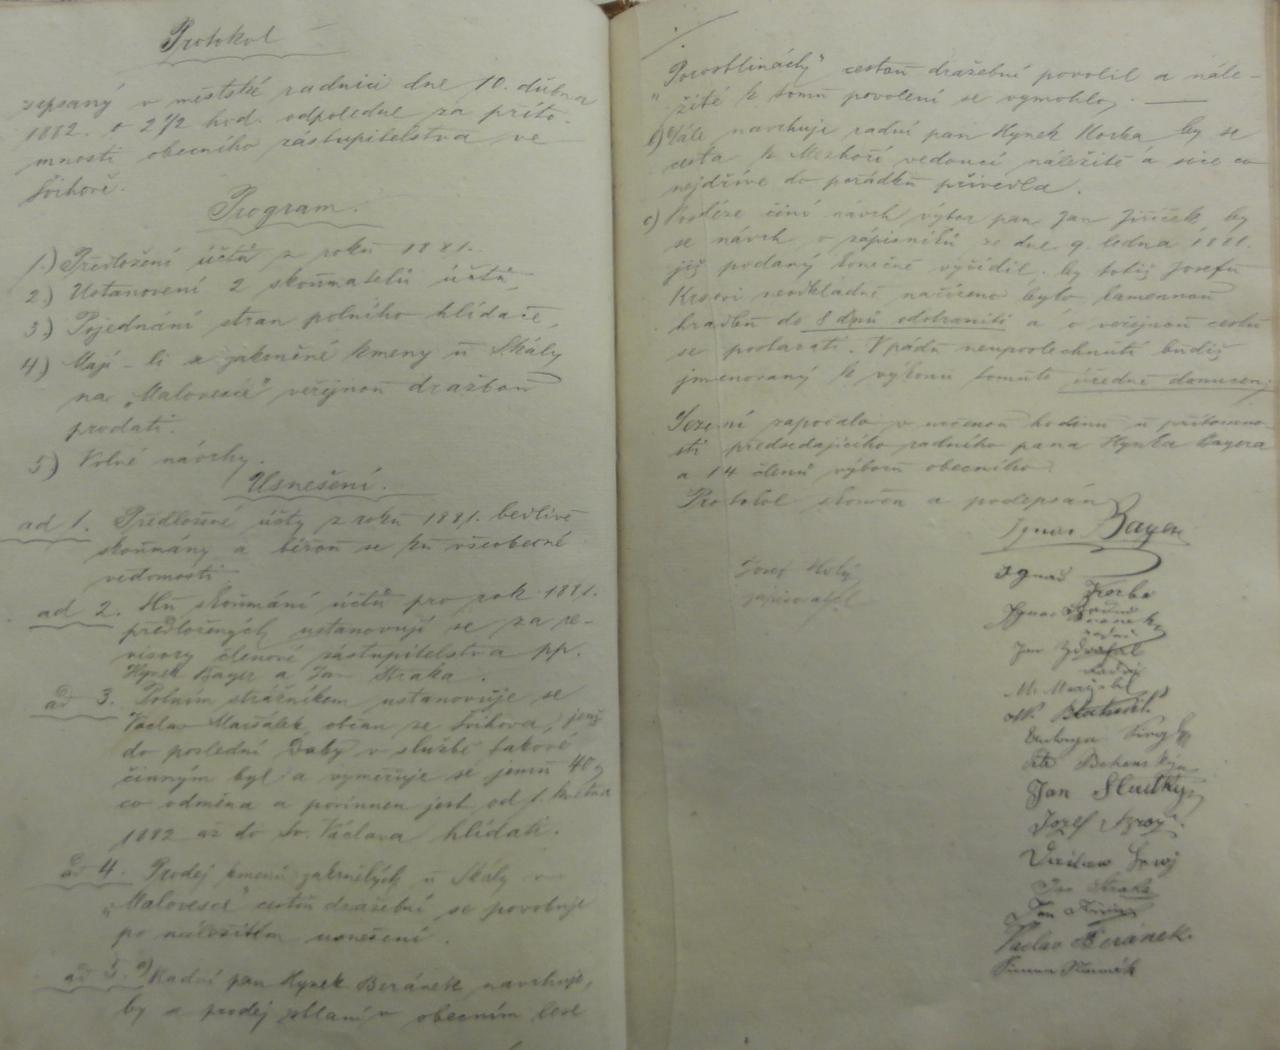 Protokol
sepsaný v městské radnici dne 10. dubna
1882. o 2 1/2 hod. odpoledne za příto-
mnosti obecního zástupitelstva ve
Švihově.
Program.
1.) Předložení účtů z roku 1881.
2.) Ustanovení 2 skoumatelů účtů,
3.) Pojednání stran polního hlídače,
4) Mají-li se zakrnělé kmeny u Skály
na „Malovesce" veřejnou dražbou
prodati.
5) Volné návrhy.
Usnešení.
ad 1. Předložené účty z roku 1881. bedlivě
skoumány a běřou se ku všeobecné
vědomosti
ad 2. Ku skoumání účtů pro rok 1881.
předložených ustanovují se za re-
visory členové zástupitelstva pp.
Hynek Bayer a Jan Straka.
ad 3. Polním strážníkem ustanovuje se
Václav Maršálek, občan ze Švihova, jenž
do poslední doby v službě takové
činným byl a vyměřuje se jemu 40 z
co odměna a povinnen jest od 1. května
1882 až do sv. Václava hlídati.
ad 4. Prodej kmenů zakrnělých u Skály v
„Malovesce" cestou dražební se povoluje
po náležitém usnešení.
ad 5. a) Radní pan Hynek Beránek navrhuje,
by se prodej v obecním lese
cestou dražební povolil a nále-
žité k tomu povolení se vymohlo.
b) Dále navrhuje radní pan Hynek Korba by se
cesta k Mezhoří vedoucí náležitě a sice co
nejdříve do pořádku přivedla.
c) Posléze činí návrh výbor pan Jan Jiříček by
se návrh o zápisníku ze dne 9. ledna 1881.
již podaný konečně vyřídil, by totiž Josefu
neodkladně nařízeno bylo kamennou
hradbu do 8 dnů odstraniti a o veřejnou cestu
se postarati. V pádu neuposlechnutí budiž
jmenovaný k výkonu tomuto úředně donucen.
Sezení započalo v určenou hodinu u přítomno-
sti předsedajícího radního pana Hynka Bayera
a 14 členů výboru obecního
Protokol skončen a podepsán
Ignac Bayer
Josef Holý
zapisovatel
Ignaš Korba
radní
Ignac Beránek
radní
Jan Zdvořil
radní
Petr
Jan Sludký
Josef
Jan Straka
Jan
Václav Beránek.